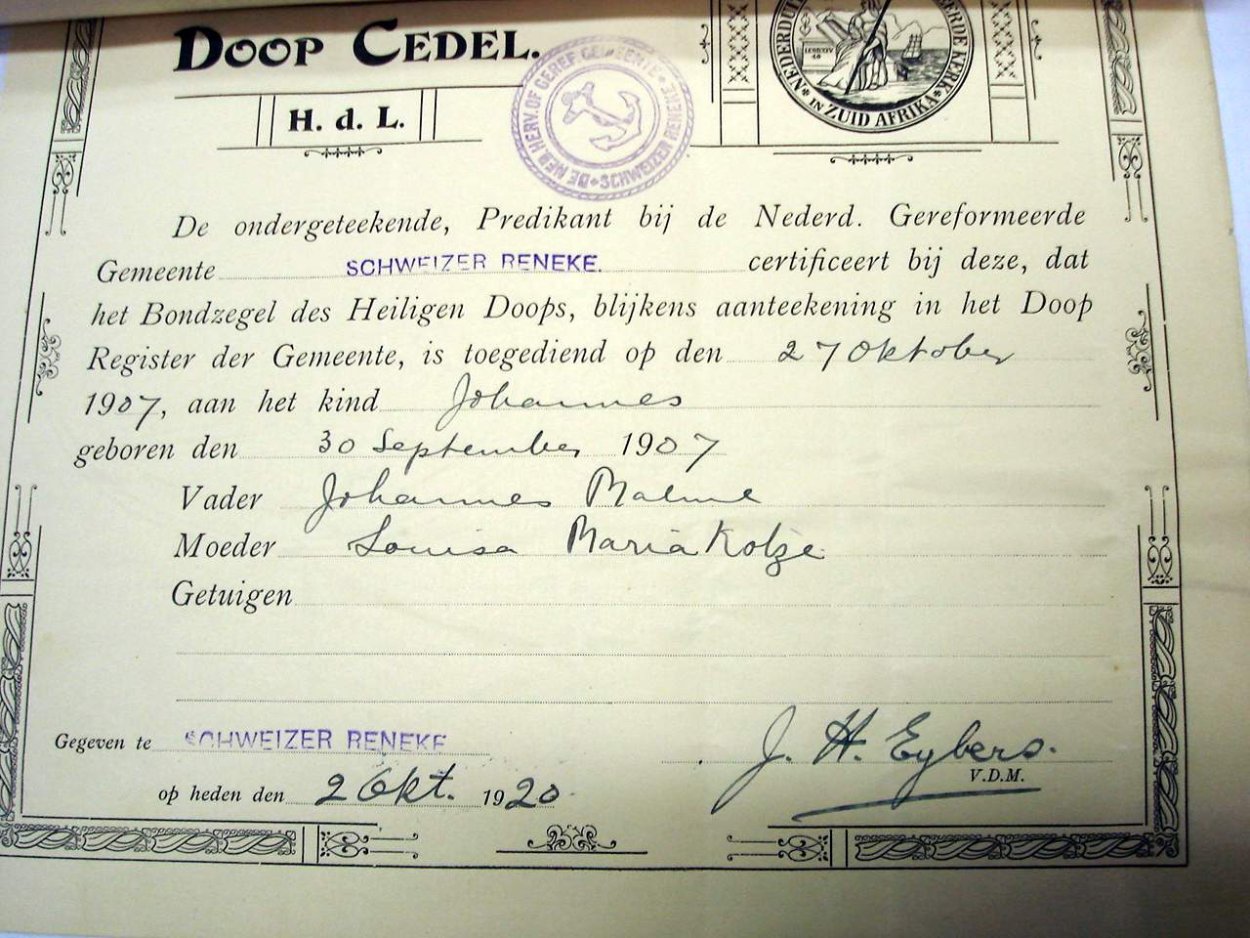 DOOP CEDEL.
H. d. L.
DE NED. HERV. OF GEREF GEMEENTE SCHWEIZER RENEKE
IN ZUID AFRIKA
De ondergeteekende, Predikant bij de Nederd. Gereformeerde
Gemeente SCHWEIZER RENEKE. certificeert bij deze, dat
het Bondzegel des Heiligen Doops, blijkens aanteekening in het Doop
Register der Gemeente, is toegediend op den 27 Oktober
1907, aan het kind Johannes
geboren den 30 September 1907
Vader Johannes
Moeder Louisa Maria Kotze
Getuigen
Gegeven te SCHWEIZER RENEKE
J. H. Eybers.
V.D.M.
op heden den 2 Okt. 1920